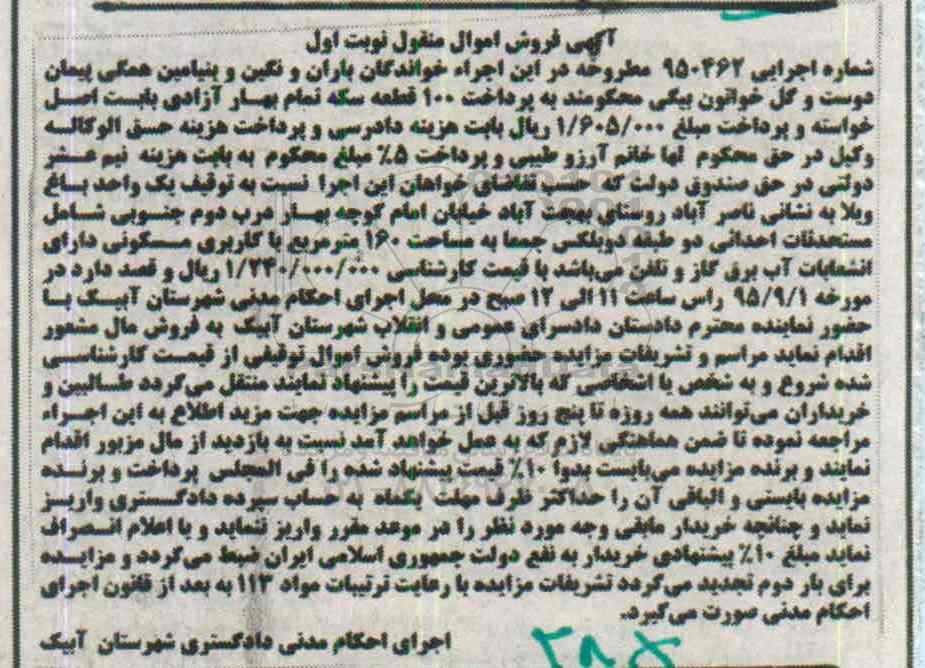 آگهی فروش اموال منقول نوبت اول
شماره اجرایی ۹۵۰۴۶۲ مطروحه در این اجراء خواندگان باران و نگین و بنیامین همگی پیمان
دوست و گل خواتون بیگی محکومند به پرداخت ۱۰۰ قطعه سکه تمام بهار آزادی بابت اصل
خواسته و پرداخت مبلغ ۱/۶۰۵/۰۰۰ ریال بابت هزینه دادرسی و پرداخت هزینه حق الوکاله
وکیل در حق محکوم لها خانم آرزو طیبی و پرداخت ۵٪ مبلغ محکوم به بابت هزینه نیم عشر
دولتی در حق صندوق دولت که حسب تقاضای خواهان این اجرا نسبت به توقیف یک واحد باغ
ویلا به نشانی ناصر آباد روستای بهجت آباد خیابان امام کوچه بهار درب دوم جنوبی شامل
مستحدثات احداثی دو طبقه دوبلکس جمعا به مساحت ۱۶۰ مترمربع با کاربری مسکونی دارای
انشعابات آب برق گاز و تلفن می‌باشد با قیمت کارشناسی ۱/۲۴۰/۰۰۰/۰۰۰ ریال و قصد دارد در
مورخه ۹۵/۹/۱ راس ساعت ۱۱ الی ۱۲ صبح در محل اجرای احکام مدنی شهرستان آبیک با
حضور نماینده محترم دادستان دادسرای عمومی و انقلاب شهرستان آبیک به فروش مال مشعور
اقدام نماید مراسم و تشریفات مزایده حضوری بوده فروش اموال توقیفی از قیمت کارشناسی
شده شروع و به شخص یا اشخاصی که بالاترین قیمت را پیشنهاد نمایند منتقل می‌گردد طالبین و
خریداران می‌توانند همه روزه تا پنج روز قبل از مراسم مزایده جهت مزید اطلاع به این اجراء
مراجعه نموده تا ضمن هماهنگی لازم که به عمل خواهد آمد نسبت به بازدید از مال مزبور اقدام
نمایند و برنده مزایده می‌بایست بدوا ۱۰٪ قیمت پیشنهاد شده را فی المجلس پرداخت و برنده
مزایده بایستی و الباقی آن را حداکثر ظرف مهلت یکماه به حساب سپرده دادگستری واریز
نماید و چنانچه خریدار مابقی وجه مورد نظر را در موعد مقرر واریز ننماید و یا اعلام انصراف
نماید مبلغ ۱۰٪ پیشنهادی خریدار به نفع دولت جمهوری اسلامی ایران ضبط می‌گردد و مزایده
برای بار دوم تجدید می‌گردد تشریفات مزایده با رعایت ترتیبات مواد ۱۱۳ به بعد از قانون اجرای
احکام مدنی صورت می‌گیرد.
اجرای احکام مدنی دادگستری شهرستان آبیک